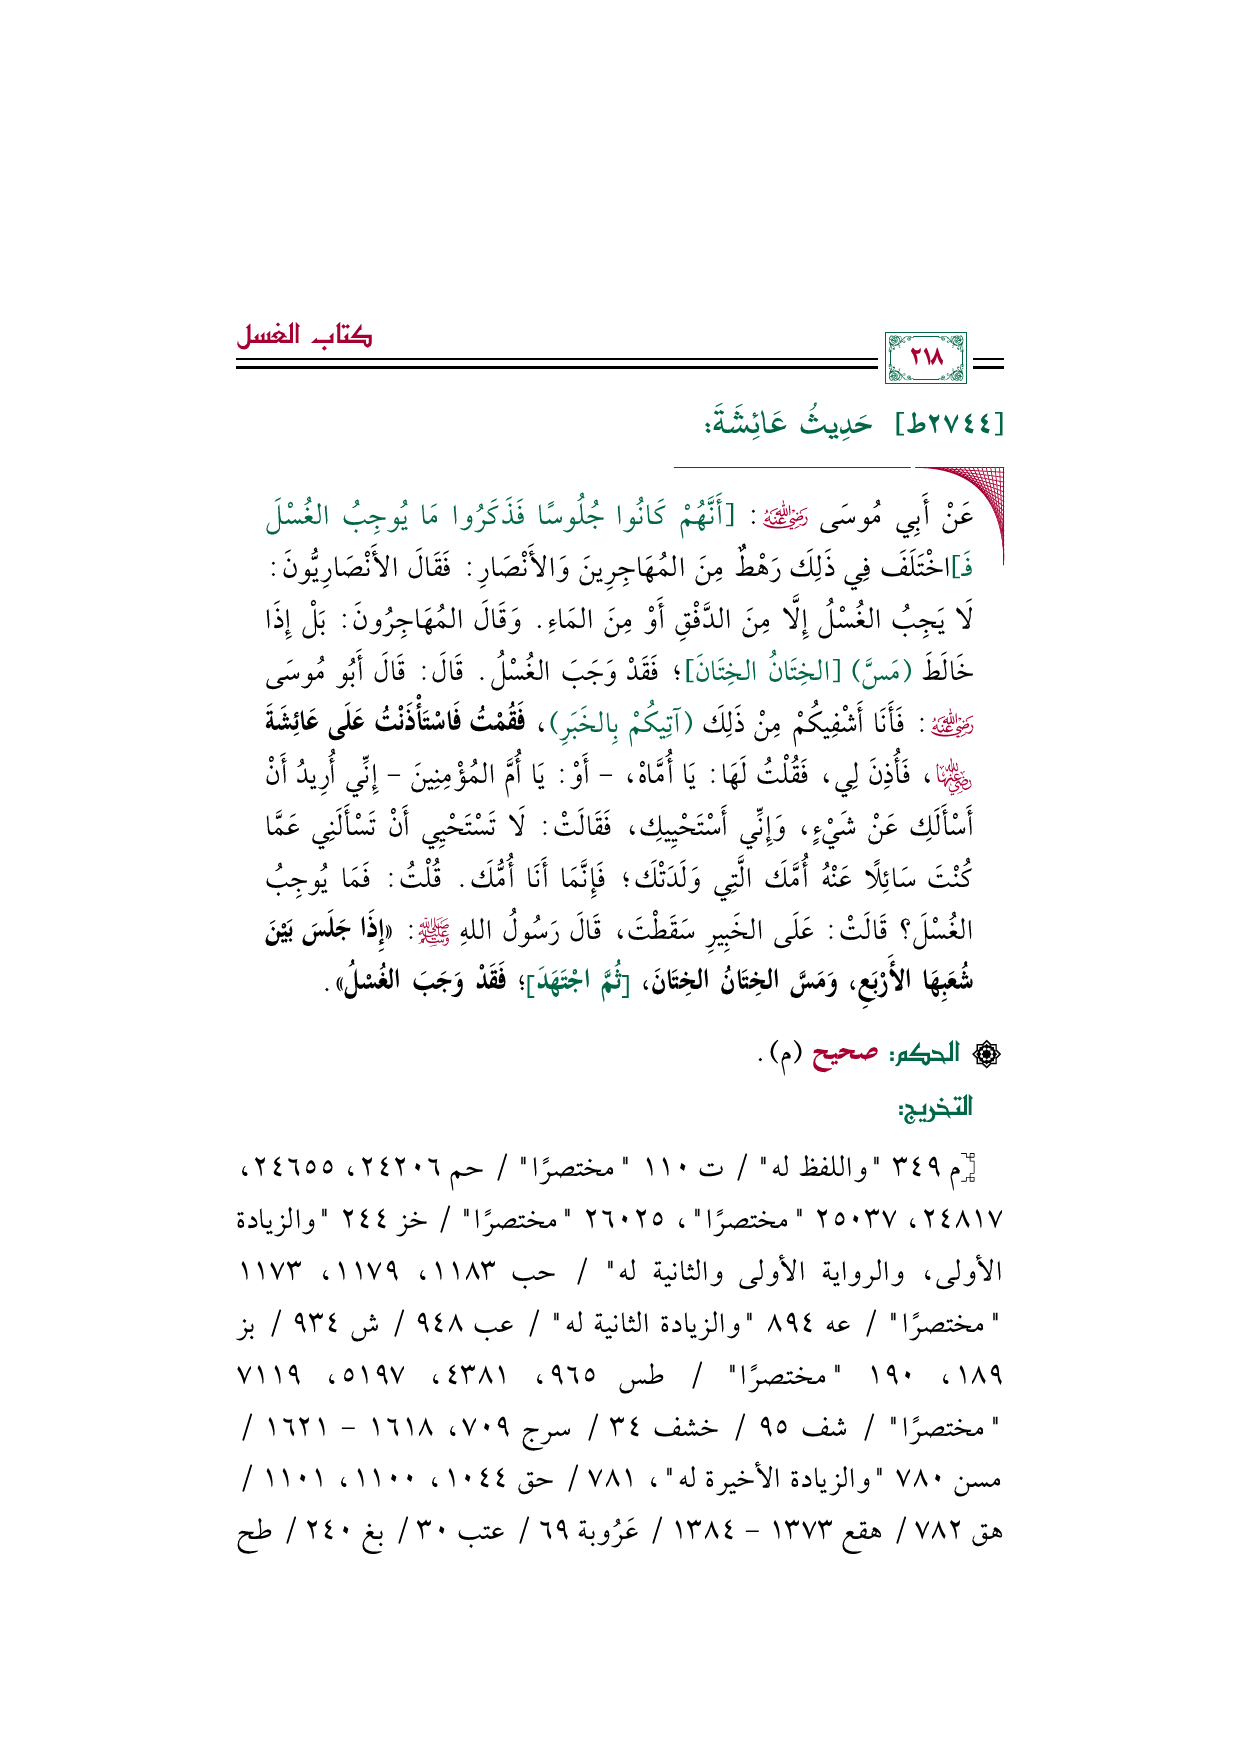 كتاب الغسل
٢١٨
[٢٧٤٤ط] حَدِيثُ عَائِشَةَ:
عَنْ أَبِي مُوسَى ﵁: [أَنَّهُمْ كَانُوا جُلُوسًا فَذَكَرُوا مَا يُوجِبُ الغُسْلَ
فَـ]اخْتَلَفَ فِي ذَلِكَ رَهْطٌ مِنَ المُهَاجِرِينَ وَالأَنْصَارِ: فَقَالَ الأَنْصَارِيُّونَ:
لَا يَجِبُ الغُسْلُ إِلَّا مِنَ الدَّفْقِ أَوْ مِنَ المَاءِ. وَقَالَ المُهَاجِرُونَ: بَلْ إِذَا
خَالَطَ (مَسَّ) [الخِتَانُ الخِتَانَ]؛ فَقَدْ وَجَبَ الغُسْلُ. قَالَ: قَالَ أَبُو مُوسَى
﵁: فَأَنَا أَشْفِيكُمْ مِنْ ذَلِكَ (آتِيكُمْ بِالخَبَرِ)، فَقُمْتُ فَاسْتَأْذَنْتُ عَلَى عَائِشَةَ
﵂، فَأُذِنَ لِي، فَقُلْتُ لَهَا: يَا أُمَّاهْ، - أَوْ: يَا أُمَّ المُؤْمِنِينَ - إِنِّي أُرِيدُ أَنْ
أَسْأَلَكِ عَنْ شَيْءٍ، وَإِنِّي أَسْتَحْيِيكِ، فَقَالَتْ: لَا تَسْتَحْيِي أَنْ تَسْأَلَنِي عَمَّا
كُنْتَ سَائِلًا عَنْهُ أُمَّكَ الَّتِي وَلَدَتْكَ؛ فَإِنَّمَا أَنَا أُمُّكَ. قُلْتُ: فَمَا يُوجِبُ
الغُسْلَ؟ قَالَتْ: عَلَى الخَبِيرِ سَقَطْتَ، قَالَ رَسُولُ اللهِ ﷺ: «إِذَا جَلَسَ بَيْنَ
شُعَبِهَا الأَرْبَعِ، وَمَسَّ الخِتَانُ الخِتَانَ، [ثُمَّ اجْتَهَدَ]؛ فَقَدْ وَجَبَ الغُسْلُ».
الحكم: صحيح (م).
التخريج:
[م ٣٤٩ "واللفظ له" / ت ١١٠ "مختصرًا" / حم ٢٤٢٠٦، ٢٤٦٥٥،
٢٤٨١٧، ٢٥٠٣٧ "مختصرًا"، ٢٦٠٢٥ "مختصرًا" / خز ٢٤٤ "والزيادة
الأولى، والرواية الأولى والثانية له" / حب ١١٨٣، ١١٧٩، ١١٧٣
"مختصرًا" / عه ٨٩٤ "والزيادة الثانية له" / عب ٩٤٨ / ش ٩٣٤ / بز
١٨٩، ١٩٠ "مختصرًا" / طس ٩٦٥، ٤٣٨١، ٥١٩٧، ٧١١٩
"مختصرًا" / شف ٩٥ / خشف ٣٤ / سرج ٧٠٩، ١٦١٨ - ١٦٢١ /
مسن ٧٨٠ "والزيادة الأخيرة له"، ٧٨١ / حق ١٠٤٤، ١١٠٠، ١١٠١ /
هق ٧٨٢ / هقع ١٣٧٣ - ١٣٨٤ / عَرُوبة ٦٩ / عتب ٣٠ / بغ ٢٤٠ / طح